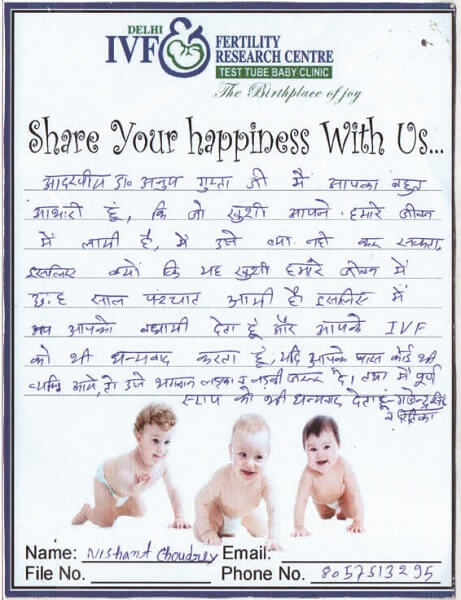 DELHI
IVF & FERTILITY
RESEARCH CENTRE
TEST TUBE BABY CLINIC
The Birthplace of joy
Share Your happiness With Us...
आदरणीय डा० अनुप गुप्ता जी मैं आपका बहुत
आभारी हूं, कि जो खुशी आपने हमारे जीवन
में लायी है, मैं उसे व्या नही कर सकता,
इसलिए क्यों कि यह खुशी हमारे जीवन में
छ:ह साल पश्चात आयी है। इसलिए में
आपको देता हूं और आपके IVF
को भी धन्यवाद करता हूं, यदि आपके पास कोई भी
व्यक्ति आये, तो उसे भगवान लड़का व लड़की जरूर दे। तथा मैं पूर्ण
स्टाप को भी धन्यवाद देता हूं -
Name: Nishant Choudrey Email:
File No. Phone No. 8057513295